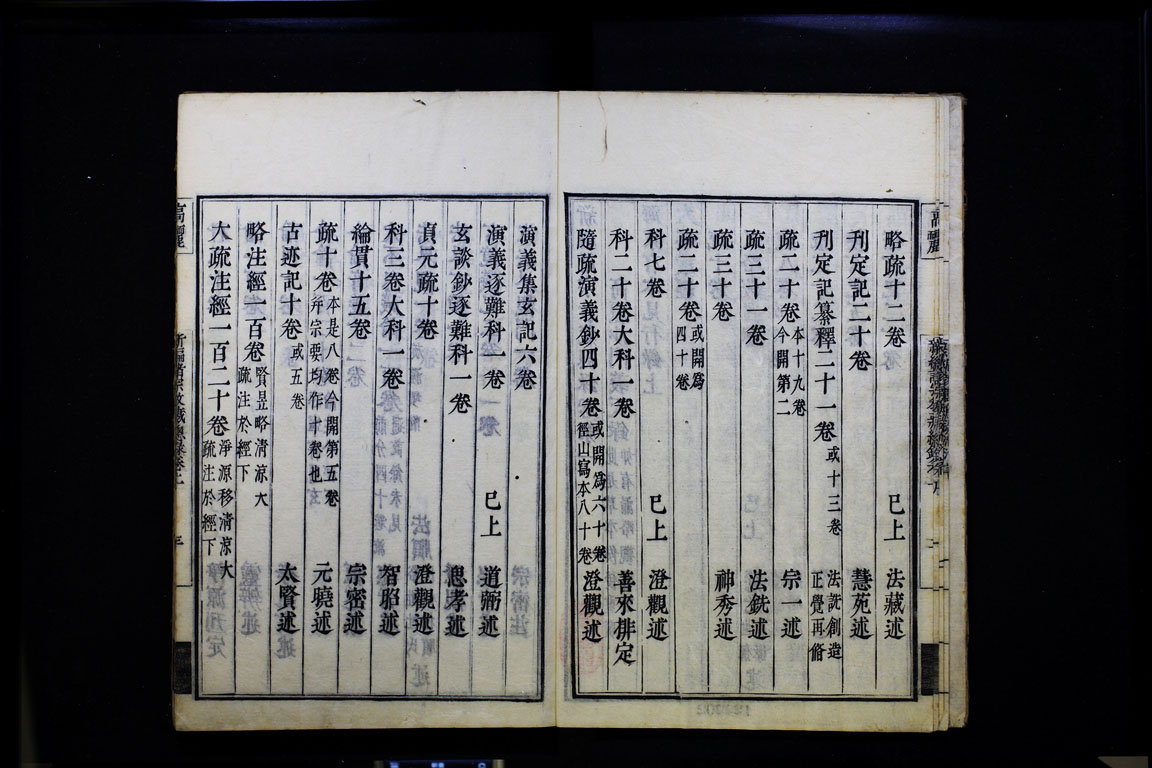 略疏十二卷　已上　法藏述
刊定記二十卷　慧苑述
刊定記纂釋二十一卷或十三卷　法詵創造正覺再脩
疏二十卷本十九卷今開第二　宗一述
疏三十一卷　法銑述
疏三十卷　神秀述
疏二十卷或開爲四十卷
科七卷　已上　澄觀述
科二十卷大科一卷　善來排定
隨疏演義鈔四十卷或開爲六十卷徑山寫本八十卷　澄觀述
演義集玄記六卷
演義逐難科一卷　已上　道弼述
玄談鈔逐難科一卷　思孝述
貞元疏十卷　澄觀述
科三卷大科一卷　智昭述
綸貫十五卷　宗密述
疏十卷本是八卷今開第五卷并宗要均作十卷也　元曉述
古迹記十卷或五卷　太賢述
略注經一百卷賢昱略清涼大疏注於經下
大疏注經一百二十卷淨源移清涼大疏注於經下
高麗
新編諸宗教藏總錄卷一
三
高麗